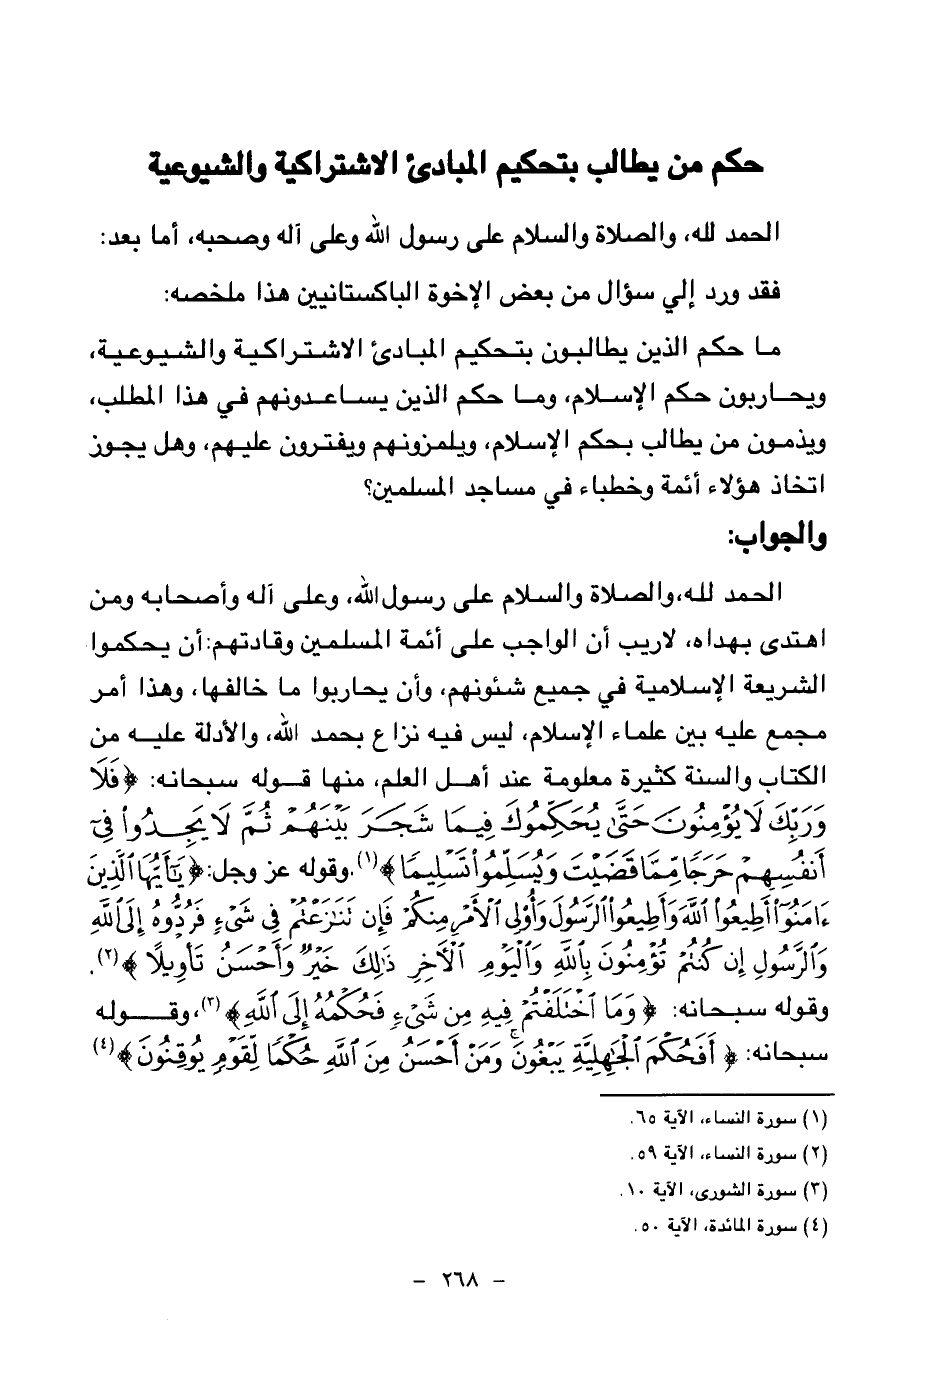 حكم من يطالب بتحكيم المبادئ الاشتراكية والشيوعية
الحمد لله، والصلاة والسلام على رسول الله وعلى آله وصحبه، أما بعد:
فقد ورد إلي سؤال من بعض الإخوة الباكستانيين هذا ملخصه:
ما حكم الذين يطالبون بتحكيم المبادئ الاشتراكية والشيوعية،
ويحاربون حكم الإسلام، وما حكم الذين يساعدونهم في هذا المطلب،
ويذمون من يطالب بحكم الإسلام، ويلمزونهم ويفترون عليهم، وهل يجوز
اتخاذ هؤلاء أئمة وخطباء في مساجد المسلمين؟
والجواب:
الحمد لله،والصلاة والسلام على رسول الله، وعلى آله وأصحابه ومن
اهتدى بهداه، لاريب أن الواجب على أئمة المسلمين وقادتهم:أن يحكموا
الشريعة الإسلامية في جميع شئونهم، وأن يحاربوا ما خالفها، وهذا أمر
مجمع عليه بين علماء الإسلام، ليس فيه نزاع بحمد الله، والأدلة عليه من
الكتاب والسنة كثيرة معلومة عند أهل العلم، منها قوله سبحانه: ﴿فَلَا
وَرَبِّكَ لَا يُؤْمِنُونَ حَتَّىٰ يُحَكِّمُوكَ فِيمَا شَجَرَ بَيْنَهُمْ ثُمَّ لَا يَجِدُوا۟ فِىٓ
أَنفُسِهِمْ حَرَجًا مِّمَّا قَضَيْتَ وَيُسَلِّمُوا۟ تَسْلِيمًا﴾(١)،وقوله عز وجل:﴿يَٰٓأَيُّهَا ٱلَّذِينَ
ءَامَنُوٓا۟ أَطِيعُوا۟ ٱللَّهَ وَأَطِيعُوا۟ ٱلرَّسُولَ وَأُو۟لِى ٱلْأَمْرِ مِنكُمْ فَإِن تَنَٰزَعْتُمْ فِى شَىْءٍ فَرُدُّوهُ إِلَى ٱللَّهِ
وَٱلرَّسُولِ إِن كُنتُمْ تُؤْمِنُونَ بِٱللَّهِ وَٱلْيَوْمِ ٱلْأَخِرِ ذَٰلِكَ خَيْرٌ وَأَحْسَنُ تَأْوِيلًا ﴾(٢)،
وقوله سبحانه: ﴿ وَمَا ٱخْتَلَفْتُمْ فِيهِ مِن شَىْءٍ فَحُكْمُهُۥٓ إِلَى ٱللَّهِ﴾(٣)،وقوله
سبحانه: ﴿ أَفَحُكْمَ ٱلْجَٰهِلِيَّةِ يَبْغُونَ ۚ وَمَنْ أَحْسَنُ مِنَ ٱللَّهِ حُكْمًا لِّقَوْمٍ يُوقِنُونَ﴾(٤)
(١) سورة النساء، الآية ٦٥.
(٢) سورة النساء، الآية ٥٩.
(٣) سورة الشورى، الآية ١٠.
(٤) سورة المائدة، الآية ٥٠.
- ٢٦٨ -